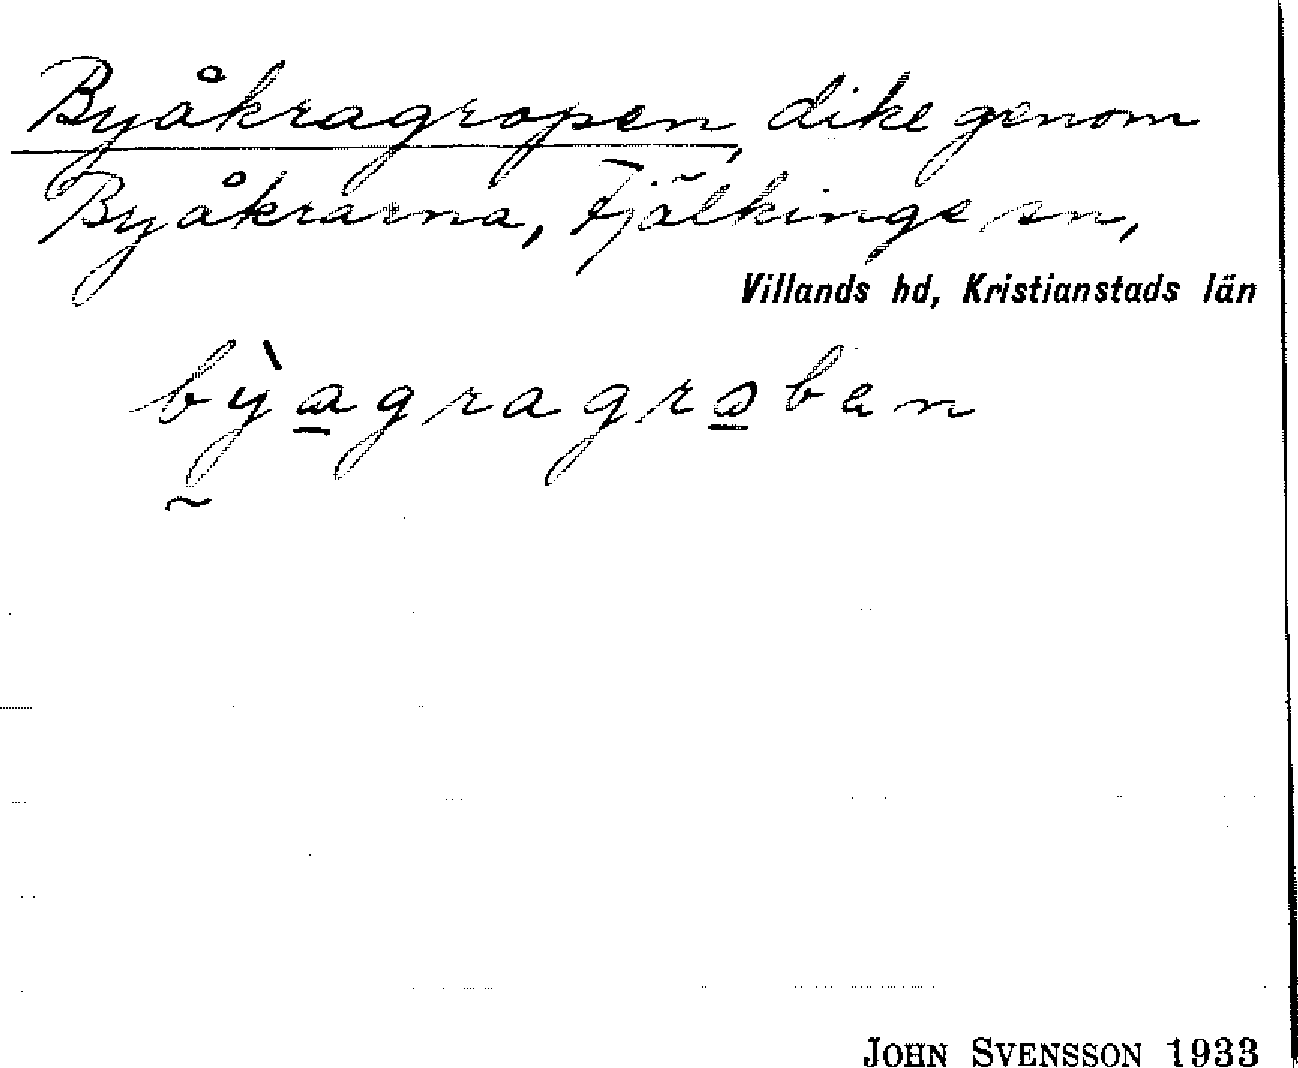 Byåkragropen, dike genom
Byåkrarna, Fjälkinge sn,
Villands hd, Kristianstads län
JOHN SVENSSON 1933